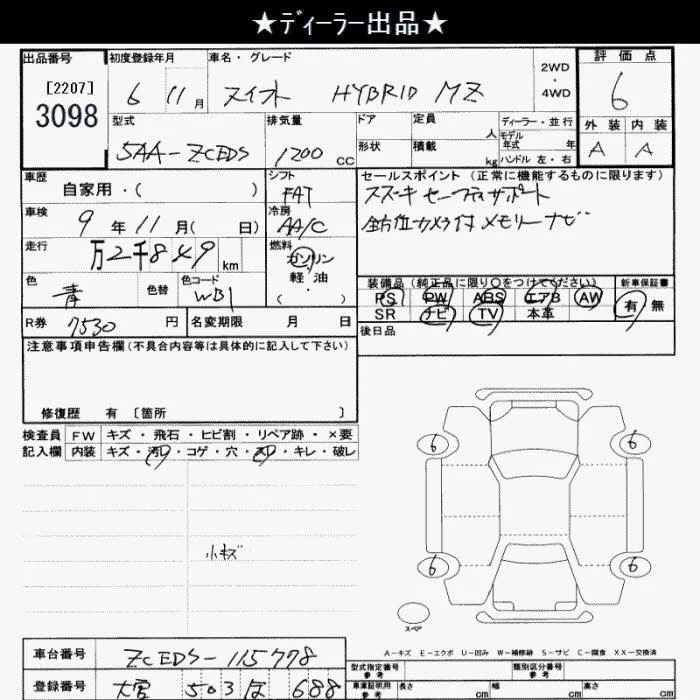 ★ディーラー出品★
出品番号 初度登録年月 車名・グレード 評価点
[2207] 6 11月 スイフト HYBRID MZ 2WD・4WD 6
3098
外装 内装
A A
型式 排気量 ドア 定員 人 ディーラー・並行
5AA-ZCEDS 1200 cc 形状 積載 kg モデル年式 年
ハンドル 左・右
車歴 シフト セールスポイント(正常に機能するものに限ります)
自家用・( ) FAT スズキ セーフティサポート
車検 冷房 全方位カメラ付 メモリーナビ
9年 11月( 日) AA/C
走行 燃料
万2千849 km ガソリン
軽・油
( )
色 色替 色コード 装備品(純正品に限り○をつけてください) 新車保証書
青 WB1 PS PW ABS エアB AW 有 無
SR ナビ TV 本革
R券 7530 円 名変期限 月 日 後日品
注意事項申告欄(不具合内容等は具体的に記入して下さい)
修復歴 有 〔箇所 〕
検査員 FW キズ・飛石・ヒビ割・リペア跡・×要
記入欄 内装 キズ・汚レ・コゲ・穴・スレ・キレ・破レ
小キズ
6 6
6 6
スペア
A-キズ E-エクボ U-凹み W-補修跡 S-サビ C-腐食 XX-交換済
車台番号 ZCEDS-115778
型式指定番号 参考 類別区分番号 参考
登録番号 503 ほ 688
車庫証明用 参考 長さ cm 幅 cm 高さ cm